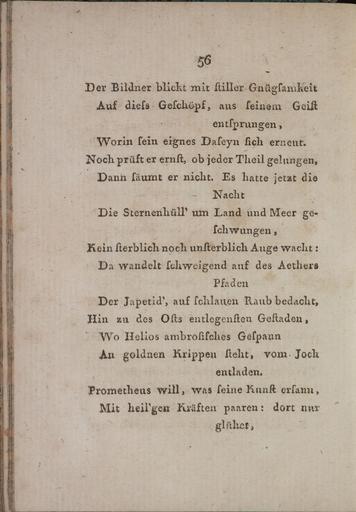 56
Der Bildner blickt mit ſtiller Gnügſamkeit
Auf dieſs Geſchöpf, aus ſeinem Geiſt
entſprungen,
Worin ſein eignes Daſeyn ſich erneut.
Noch prüft er ernſt, ob jeder Theil gelungen,
Dann ſäumt er nicht. Es hatte jetzt die
Nacht
Die Sternenhüll' um Land und Meer ge-
ſchwungen,
Kein ſterblich noch unſterblich Auge wacht:
Da wandelt ſchweigend auf des Aethers
Pfaden
Der Japetid', auf ſchlauen Raub bedacht,
Hin zu des Oſts entlegenſten Geſtaden,
Wo Helios ambroſiſches Geſpann
An goldnen Krippen ſteht, vom Joch
entladen.
Prometheus will, was ſeine Kunſt erſann,
Mit heil'gen Kräften paaren: dort nur
glühet,